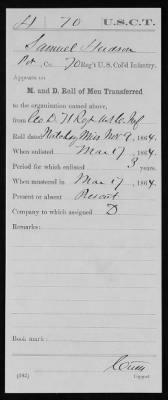 H 70 U.S.C.T.
Samuel Hudson
Pvt, Co. 70 Reg't U.S. Col'd Infantry.
Appears on
M. and D. Roll of Men Transferred
to the organization named above,
from Co D. 71 Regt US C Inf
Roll dated Natchez Miss Nov 9, 1864.
When enlisted Mar 17, 1864.
Period for which enlisted 3 years.
When mustered in Mar 17, 1864.
Present or absent Present
Company to which assigned D
Remarks:
Book mark:
(592) Copyist.